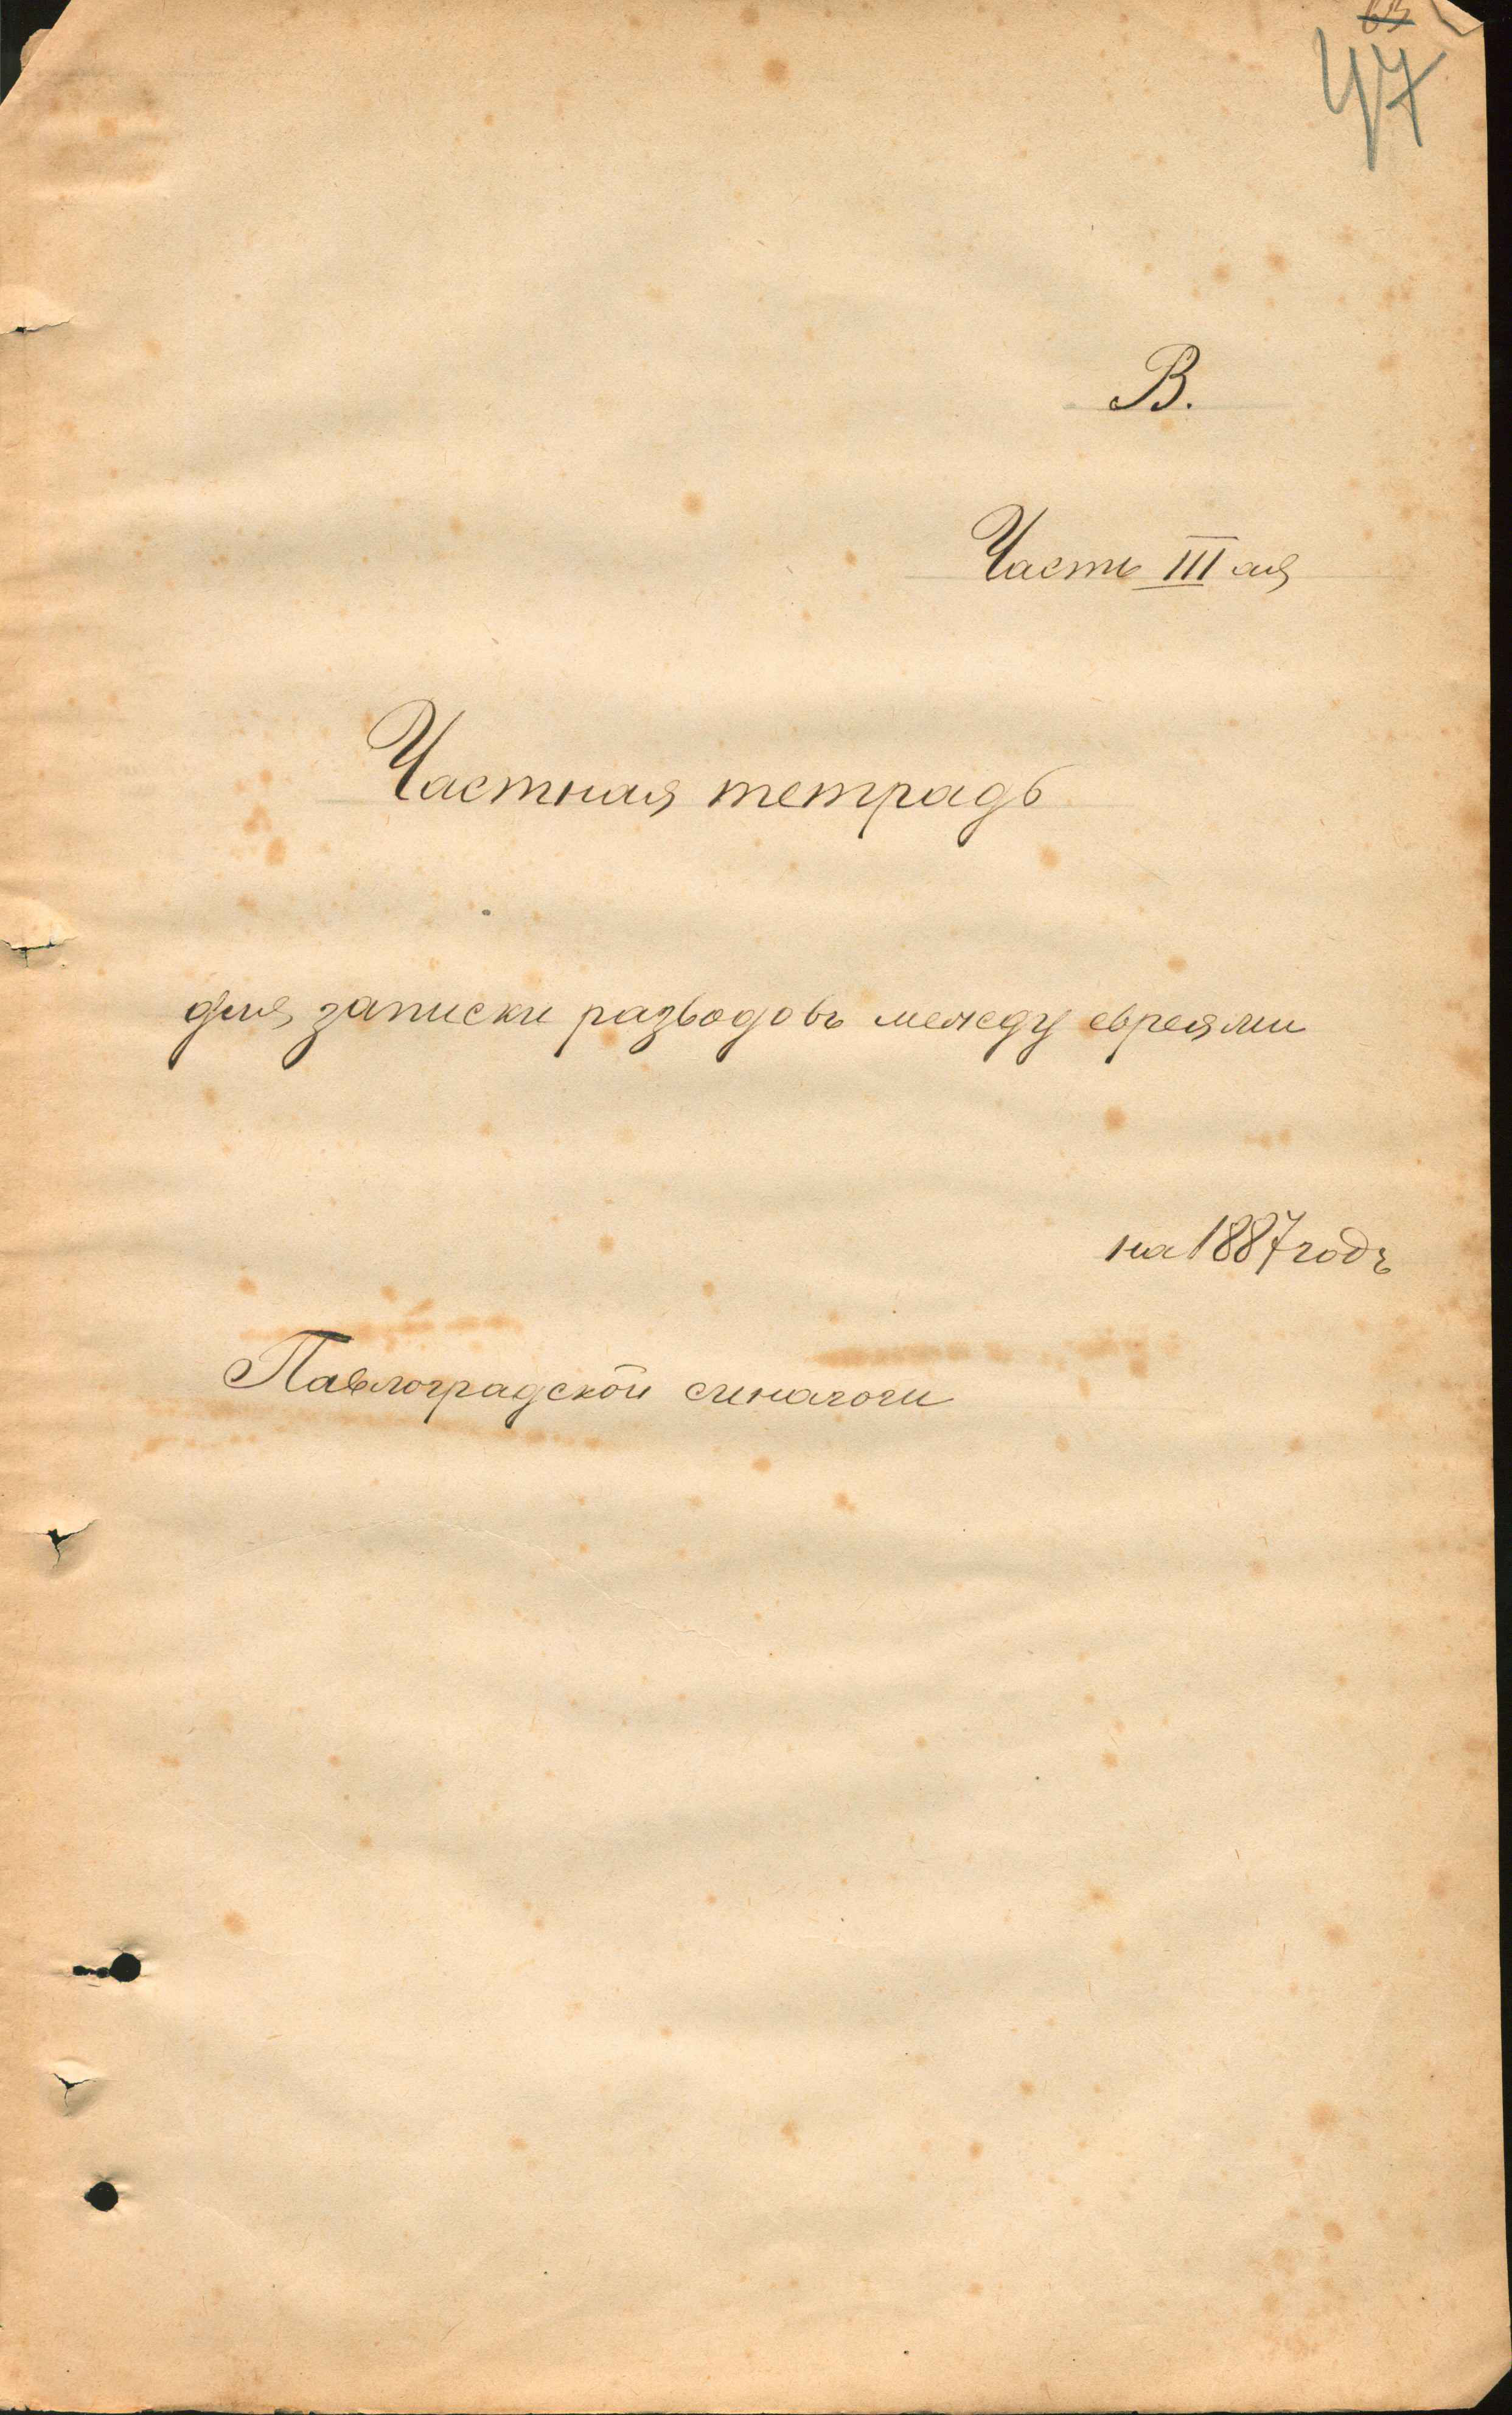 47
В.
Часть III ая
Частная тетрадь
для записки разводовъ между евреями
на 1887 годъ
Павлоградской синагоги